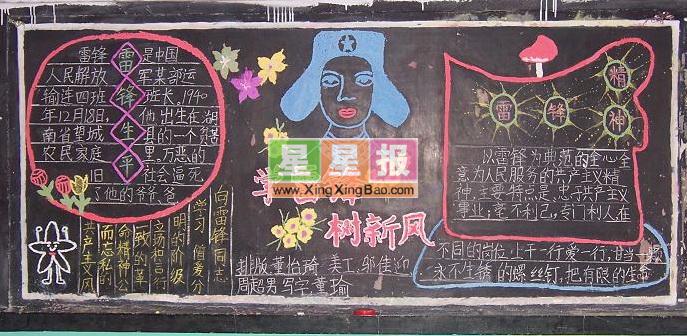 雷锋 雷 是中国
人民解放 军某部运
输连四班 锋 班长。1940
年12月18日, 他出生在湖
南省望城 生 县的一个贫苦
农民家庭 里,万恶的
旧 平 社会逼死
了他的爷爷、爸
向雷锋同志
学习 憎爱分
明的阶级
立场和言行
一致的革
命精神公
而忘私的
共产主义风
星星报
www.XingXingBao.com
学
树新风
排版董怡琦 美工、邹佳迎
周超男 写字董瑜
雷 锋 精 神
以雷锋为典范的全心全
意为人民服务的共产主义精
神、主要特点是、忠于共产主义
事业;毫不利己,专门利人在
不同的岗位上干一行爱一行,甘当一颗
永不生锈的螺丝钉,把有限的生命